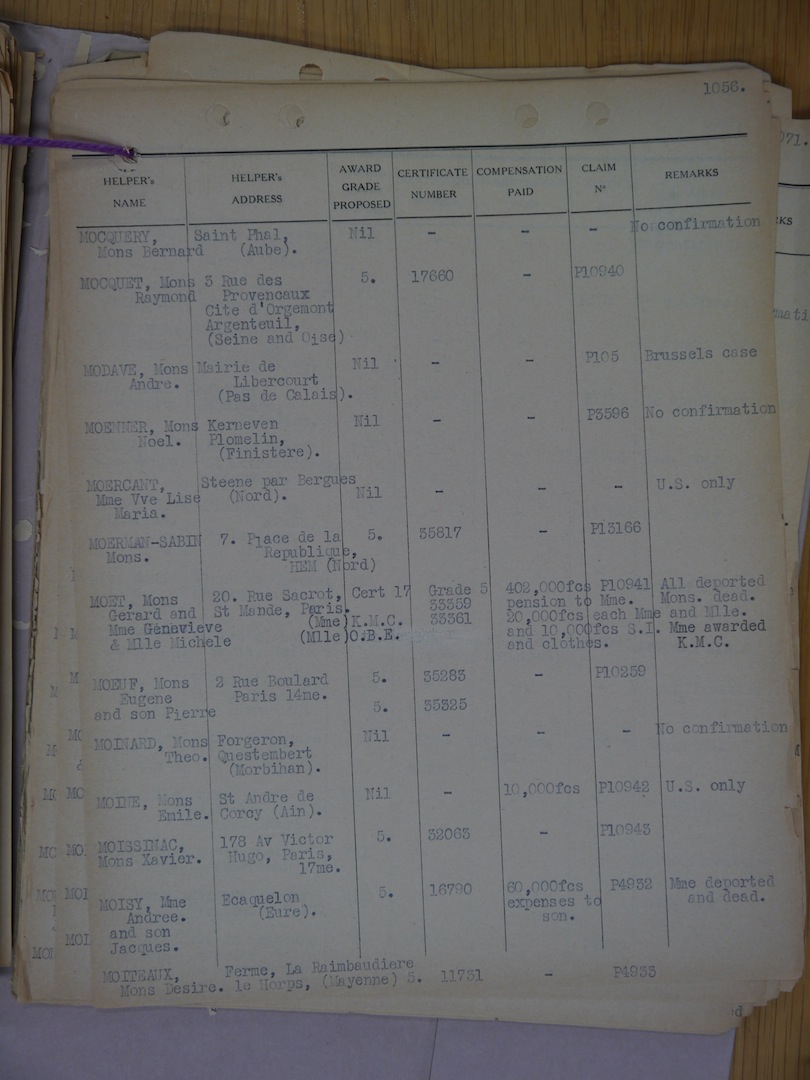 1056.
HELPER's NAME HELPER's ADDRESS AWARD GRADE PROPOSED CERTIFICATE NUMBER COMPENSATION PAID CLAIM Nº REMARKS
MOCQUERY, Saint Phal, Nil - - - No confirmation
Mons Bernard (Aube).
MOCQUET, Mons 3 Rue des 5. 17660 - P10940
Raymond Provencaux
Cite d'Orgemont
Argenteuil,
(Seine and Oise)
MODAVE, Mons Mairie de Nil - - P105 Brussels case
Andre. Libercourt
(Pas de Calais).
MOENNER, Mons Kerneven Nil - - P3596 No confirmation
Noel. Plomelin,
(Finistere).
MOERCANT, Steene par Bergues Nil - - - U.S. only
Mme Vve Lise (Nord).
Maria.
MOERMAN-SABIN 7. Place de la 5. 35817 - P13166
Mons. Republique,
HEM (Nord)
MOET, Mons 20. Rue Sacrot, Cert 17 Grade 5 402,000fcs P10941 All deported
Gerard and St Mande, Paris. 33359 pension to Mme. Mons. dead.
Mme Genevieve (Mme) K.M.C. 33361 20,000fcs each Mme and Mlle.
& Mlle Michele (Mlle) O.B.E. and 10,000fcs S.I. Mme awarded
and clothes. K.M.C.
MOEUF, Mons 2 Rue Boulard 5. 35283 - P10259
Eugene Paris 14me.
and son Pierre 5. 35325
MOINARD, Mons Forgeron, Nil - - - No confirmation
Theo. Questembert
(Morbihan).
MOINE, Mons St Andre de Nil - 10,000fcs P10942 U.S. only
Emile. Corcy (Ain).
MOISSINAC, 178 Av Victor 5. 32063 - P10943
Mons Xavier. Hugo, Paris,
17me.
MOISY, Mme Ecaquelon 5. 16790 60,000fcs P4932 Mme deported
Andree. (Eure). expenses to and dead.
and son son.
Jacques.
MOITEAUX, Ferme, La Raimbaudiere
Mons Desire. le Horps, (Mayenne) 5. 11731 - P4933